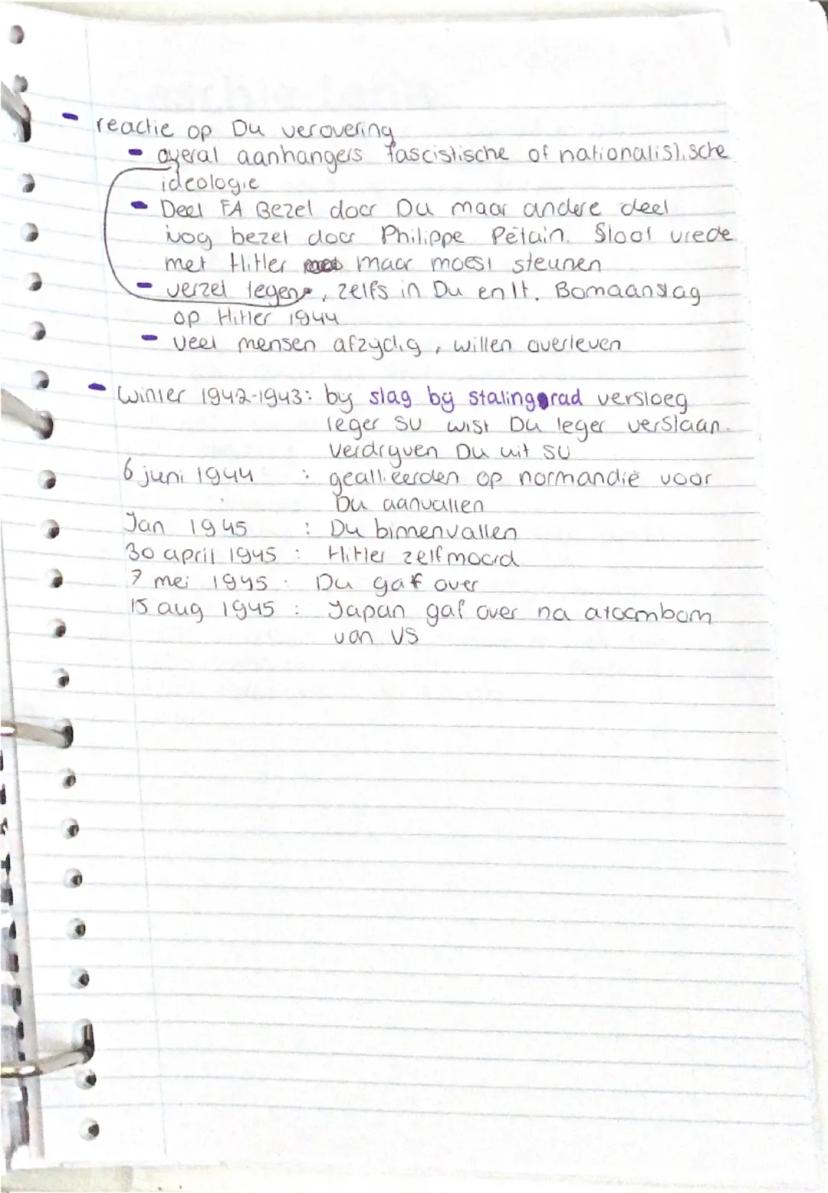 - reactie op Du verovering
- overal aanhangers fascistische of nationalistische
ideologie
- Deel FA Bezet door Du maar andere deel
nog bezet door Philippe Pétain. Sloot vrede
met Hitler maar moest steunen
- verzet tegen, zelfs in Du en It. Bomaanslag
op Hitler 1944
- veel mensen afzydig, willen overleven
- Winter 1942-1943: by slag by stalingrad versloeg
leger SU wist Du leger verslaan.
Verdryven Du uit SU
6 juni 1944 : geallieerden op normandië voor
Du aanvallen
Jan 1945 : Du binnenvallen
30 april 1945 : Hitler zelfmoord
7 mei 1945 : Du gaf over
15 aug 1945 : Japan gaf over na atoombom
van VS